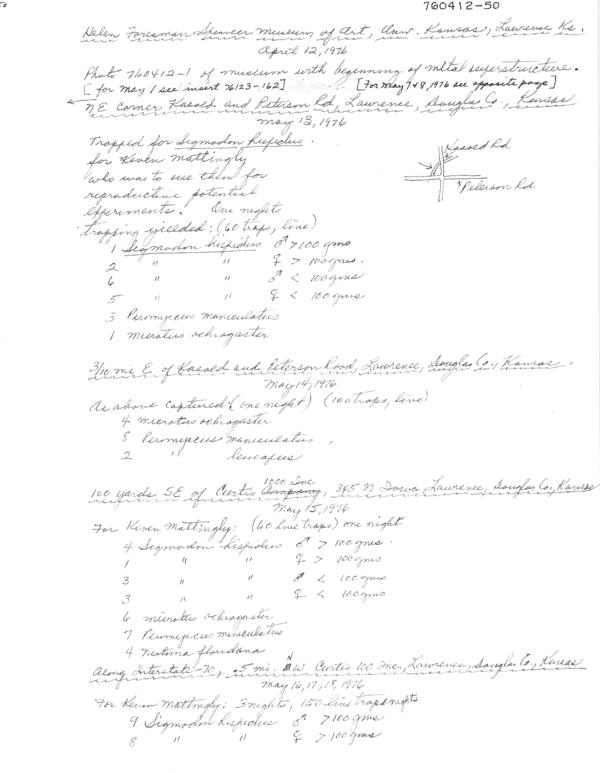 760412-50
Helen Foresman Spencer Museum of Art, Univ. Kansas, Lawrence Ks.
April 12, 1976
Photo 760412-1 of museum with beginning of metal superstructure.
[for May 1 see insert 76123-162] [For May 7+8, 1976 see opposite page]
NE Corner, Kasold and Peterson Rd, Lawrence, Douglas Co., Kansas
May 13, 1976
Trapped for Sigmodon hispidus.
for Keven Mattingly
who was to use them for
reproductive potential
experiments. One nights
trapping yielded: (60 traps, live)
Kasold Rd
Peterson Rd
1 Sigmodon hispidus ♂ >100 gms
2 " " ♀ > 100 gms.
6 " " ♂ < 100 gms
5 " " ♀ < 100 gms
3 Peromyscus maniculatus
1 Microtus ochrogaster
3/10 mi E. of Kasold and Peterson Road, Lawrence, Douglas Co., Kansas.
May 14, 1976
As above captured: (one night) (100 traps, live)
4 Microtus ochrogaster
8 Peromyscus maniculatus
2 " leucopus
100 yards SE of Curtis Company 1000 Inc, 345 N Iowa, Lawrence, Douglas Co., Kansas
May 15, 1976
For Keven Mattingly: (60 live traps) one night
4 Sigmodon hispidus ♂ > 100 gms.
1 " " ♀ > 100 gms
3 " " ♂ < 100 gms
3 " " ♀ < 100 gms
6 Microtus ochrogaster
7 Peromyscus maniculatus
4 Neotoma floridana
Along Interstate-70, .5 mi. NW Curtis 100 Inc, Lawrence, Douglas Co, Kansas
May 16, 17, 18, 1976
For Keven Mattingly: 3 nights, 150 live traps nights
9 Sigmodon hispidus ♂ >100 gms
8 " " ♀ > 100 gms